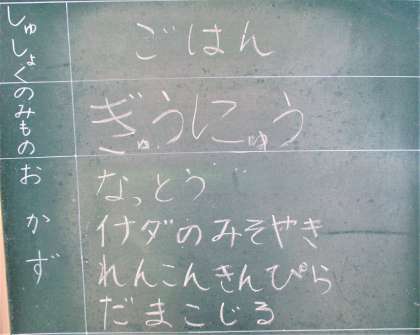 しゅしょく
ごはん
のみもの
ぎゅうにゅう
おかず
なっとう
イナダのみそやき
れんこんきんぴら
だまこじる